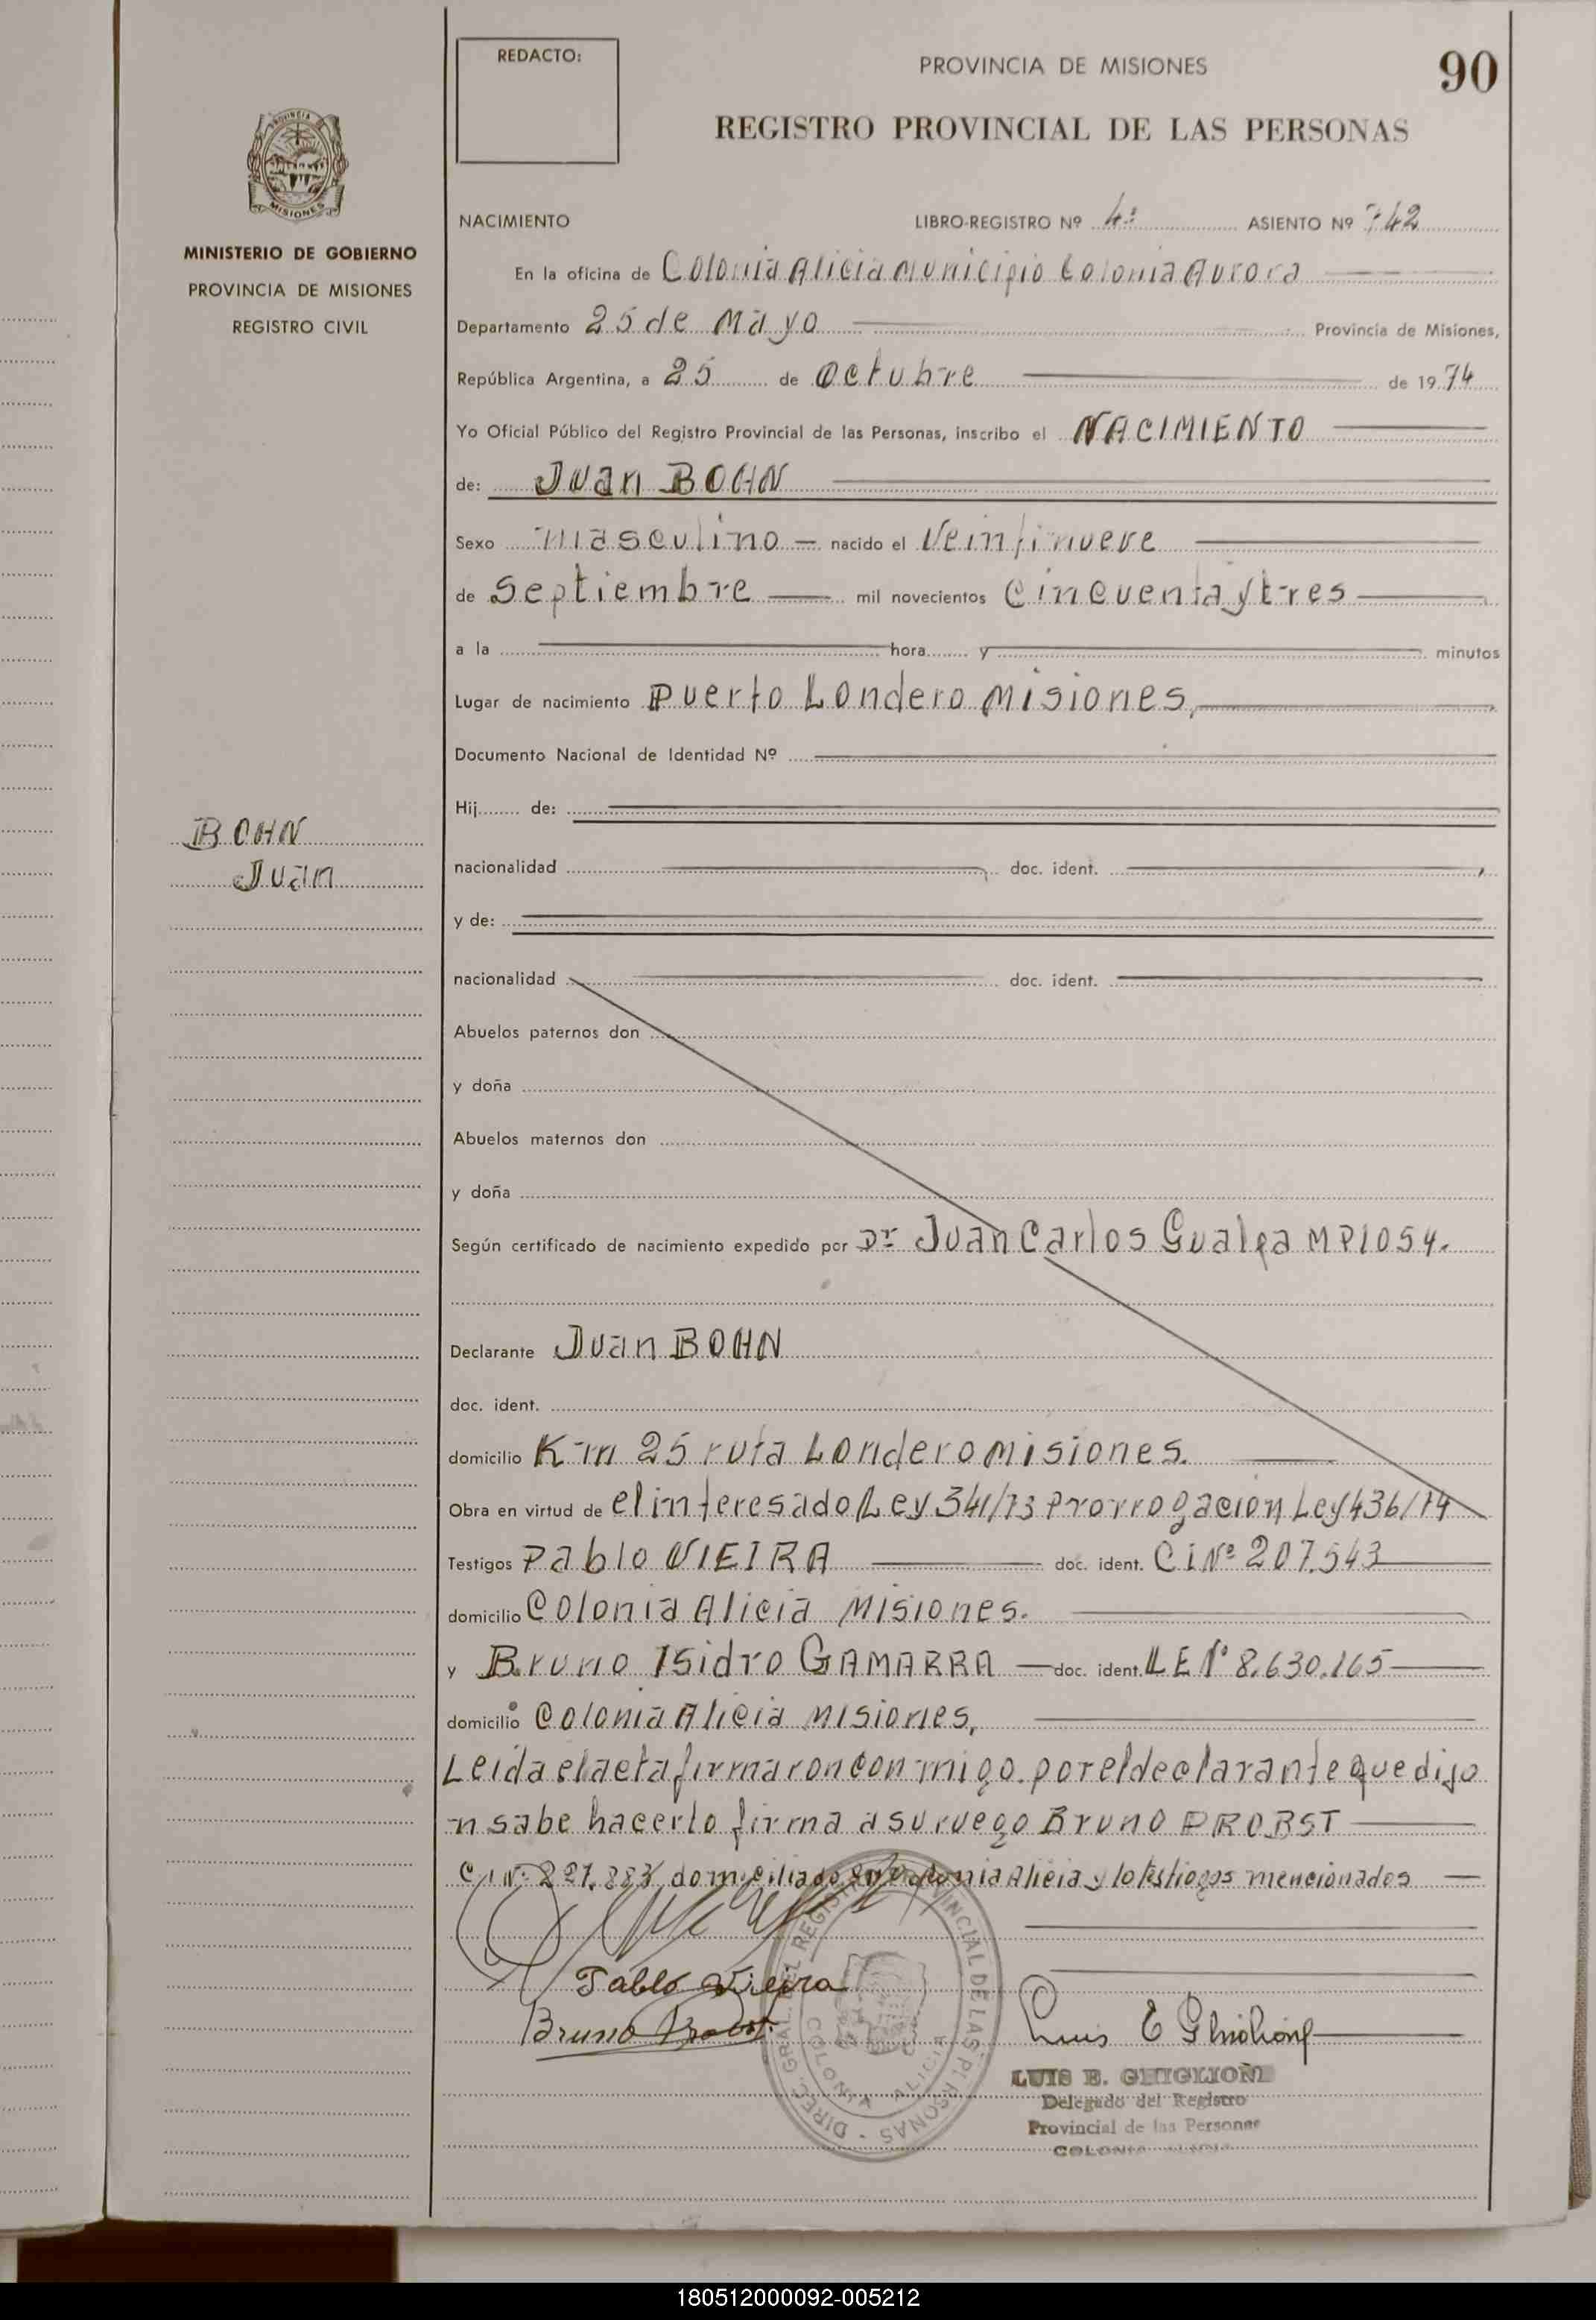 REDACTO:
PROVINCIA DE MISIONES
90
REGISTRO PROVINCIAL DE LAS PERSONAS
PROVINCIA
MISIONES
MINISTERIO DE GOBIERNO
PROVINCIA DE MISIONES
REGISTRO CIVIL
NACIMIENTO LIBRO-REGISTRO Nº 4º ASIENTO Nº 742
En la oficina de Colonia Alicia Municipio Colonia Aurora
Departamento 25 de Mayo Provincia de Misiones,
República Argentina, a 25 de Octubre de 1974
Yo Oficial Público del Registro Provincial de las Personas, inscribo el NACIMIENTO
de: Juan BOHN
Sexo masculino nacido el Veintinueve
de Septiembre mil novecientos Cincuenta y tres
a la hora y minutos
Lugar de nacimiento Puerto Londero Misiones,
Documento Nacional de Identidad Nº
Hij de:
BOHN
Juan
nacionalidad doc. ident.
y de:
nacionalidad doc. ident.
Abuelos paternos don
y doña
Abuelos maternos don
y doña
Según certificado de nacimiento expedido por Dr Juan Carlos Gualpa MP1054.
Declarante Juan BOHN
doc. ident.
domicilio Km 25 ruta Londero Misiones.
Obra en virtud de el interesado Ley 341/73 Prorrogacion Ley 436/74
Testigos Pablo VIEIRA doc. ident. CI Nº 207.543
domicilio Colonia Alicia Misiones.
y Bruno Isidro GAMARRA doc. ident. LE Nº 8.630.165
domicilio Colonia Alicia Misiones,
Leida el acta firmaron conmigo. por el declarante que dijo
n sabe hacerlo firma a su ruego Bruno PROBST
C.I.Nº domiciliado en Colonia Alicia y lo testigos mencionados
Pablo Vieira
Bruno Probst
Luis E Ghiglione
DIREC. GRAL. DEL REGISTRO PROVINCIAL DE LAS PERSONAS
COLONIA ALICIA
LUIS E. GHIGLIONE
Delegado del Registro
Provincial de las Personas
COLONIA ALICIA
180512000092-005212